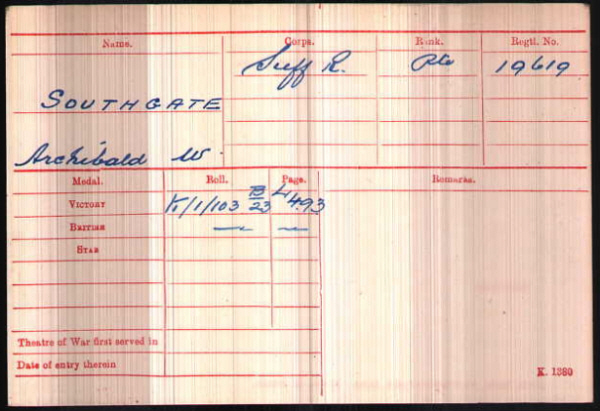 Name. Corps. Rank. Regtl. No.
Suff R. Pte 19619
SOUTHGATE
Archibald W.
Medal. Roll. Page. Remarks.
VICTORY K/1/103 B/23 4493
BRITISH — —
STAR
Theatre of War first served in
Date of entry therein
K. 1380